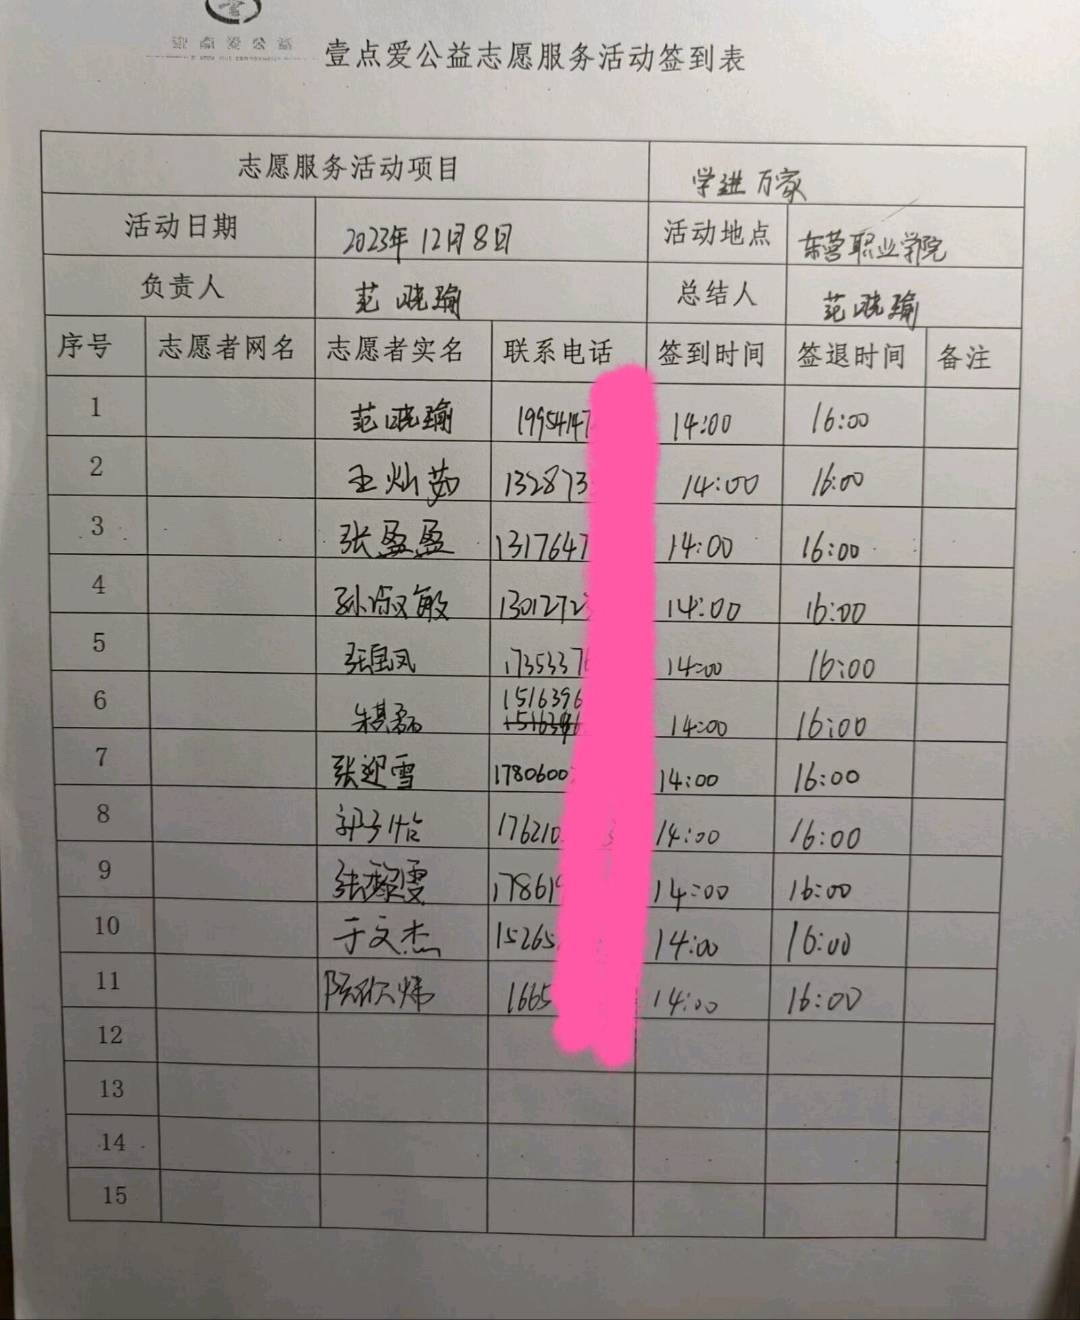 壹点爱公益
壹点爱公益志愿服务活动签到表
志愿服务活动项目 学进万家
活动日期 2023年12月8日 活动地点 东营职业学院
负责人 范晓瑜 总结人 范晓瑜
序号 志愿者网名 志愿者实名 联系电话 签到时间 签退时间 备注
1 范晓瑜 1995414 14:00 16:00
2 王灿茹 132873 14:00 16:00
3 张盈盈 1317647 14:00 16:00
4 孙淑敏 1301272 14:00 16:00
5 17353376 14:00 16:00
6 1516396 14:00 16:00
7 张迎雪 1780600 14:00 16:00
8 郭子怡 176210 14:00 16:00
9 17861 14:00 16:00
10 于文杰 15265 14:00 16:00
11 1665 14:00 16:00
12
13
14
15